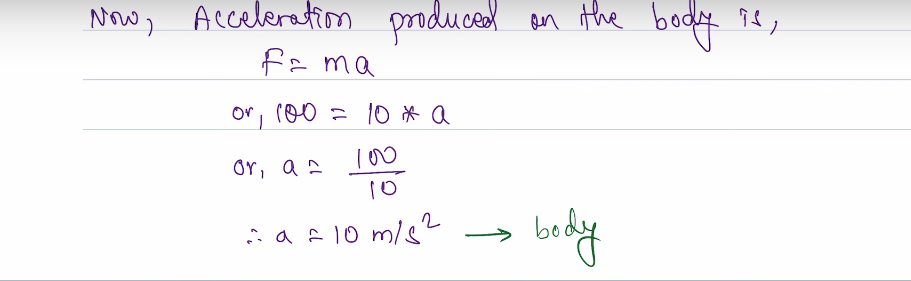 Now, Acceleration produced on the body is,
F = ma
or, 100 = 10 * a
or, a = 100/10
∴ a = 10 m/s² → body